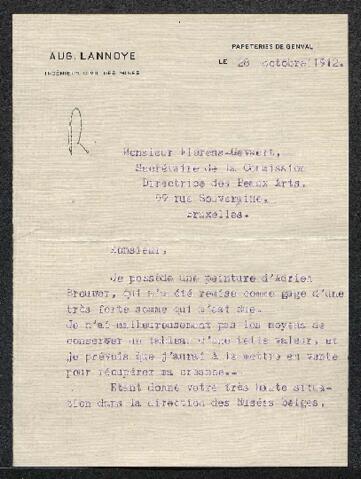 AUG. LANNOYE
INGÉNIEUR CIVIL DES MINES
PAPETERIES DE GENVAL
LE 28 octobre 1912.
R
Monsieur Fiérens-Gevaert,
Secrétaire de la Commission
Directrice des Beaux Arts.
99 rue Souveraine.
Bruxelles.
Monsieur,
Je possède une peinture d'Adrien
Brouwer, qui m'a été remise comme gage d'une
très forte somme qui m'est due.
Je n'ai malheureusement pas les moyens de
conserver un tableau d'une telle valeur, et
je prévois que j'aurai à le mettre en vente
pour récupérer ma créance.-
Etant donné votre très haute situa-
tion dans la direction des Musées belges,